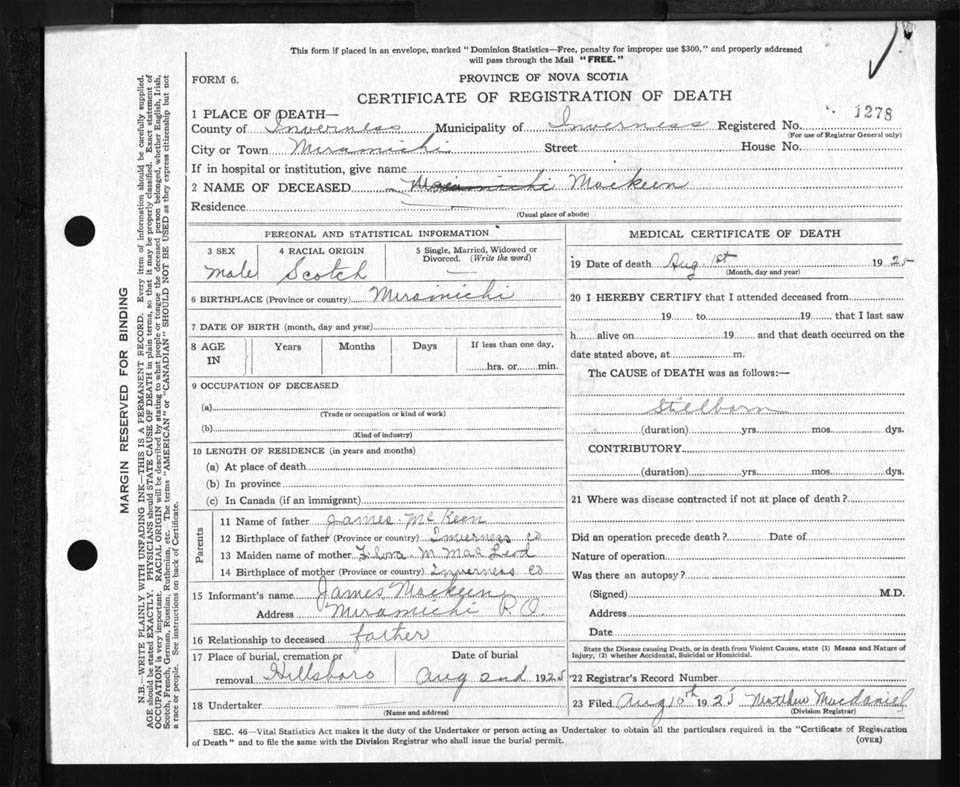 This form if placed in an envelope, marked "Dominion Statistics—Free, penalty for improper use $300," and properly addressed
will pass through the Mail "FREE."
FORM 6.
PROVINCE OF NOVA SCOTIA
CERTIFICATE OF REGISTRATION OF DEATH
1 PLACE OF DEATH—
County of Inverness Municipality of Inverness Registered No. 1278
(For use of Registrar General only)
City or Town Miramichi Street House No.
If in hospital or institution, give name
2 NAME OF DECEASED Mackeen
Residence
(Usual place of abode)
PERSONAL AND STATISTICAL INFORMATION
3 SEX 4 RACIAL ORIGIN 5 Single, Married, Widowed or
Divorced. (Write the word)
Male Scotch
6 BIRTHPLACE (Province or country) Miramichi
7 DATE OF BIRTH (month, day and year)
8 AGE IN Years Months Days If less than one day,
hrs. or min.
9 OCCUPATION OF DECEASED
(a)
(Trade or occupation or kind of work)
(b)
(Kind of industry)
10 LENGTH OF RESIDENCE (in years and months)
(a) At place of death
(b) In province
(c) In Canada (if an immigrant)
Parents
11 Name of father James McKeen
12 Birthplace of father (Province or country) Inverness Co
13 Maiden name of mother M MacLeod
14 Birthplace of mother (Province or country) Inverness Co
15 Informant's name James Mackeen
Address Miramichi P.O.
16 Relationship to deceased father
17 Place of burial, cremation or Date of burial
removal Hillsboro Aug 2nd 1925
18 Undertaker
(Name and address)
MEDICAL CERTIFICATE OF DEATH
19 Date of death Aug. 1st 1925
(Month, day and year)
20 I HEREBY CERTIFY that I attended deceased from
19 to 19 that I last saw
h alive on 19 and that death occurred on the
date stated above, at m.
The CAUSE of DEATH was as follows:—
Stilborn
(duration) yrs. mos. dys.
CONTRIBUTORY
(duration) yrs. mos. dys.
21 Where was disease contracted if not at place of death?
Did an operation precede death? Date of
Nature of operation
Was there an autopsy?
(Signed) M.D.
Address
Date
State the Disease causing Death, or in death from Violent Causes, state (1) Means and Nature of
Injury, (2) whether Accidental, Suicidal or Homicidal.
22 Registrar's Record Number
23 Filed Aug 10th 1925 Matthew Macdaniel
(Division Registrar)
SEC. 46—Vital Statistics Act makes it the duty of the Undertaker or person acting as Undertaker to obtain all the particulars required in the "Certificate of Registration
of Death" and to file the same with the Division Registrar who shall issue the burial permit.
(OVER)
MARGIN RESERVED FOR BINDING
N.B.—WRITE PLAINLY WITH UNFADING INK—THIS IS A PERMANENT RECORD. Every item of information should be carefully supplied.
AGE should be stated EXACTLY. PHYSICIANS should STATE CAUSE OF DEATH in plain terms, so that it may be properly classified. Exact statement of
OCCUPATION is very important. RACIAL ORIGIN will be described by stating to what people or tongue the deceased person belonged, whether English, Irish,
Scotch, French, German, Russian, Ruthenian, etc. The terms "AMERICAN" or "CANADIAN" SHOULD NOT BE USED as they express citizenship but not
a race or people. See instructions on back of Certificate.